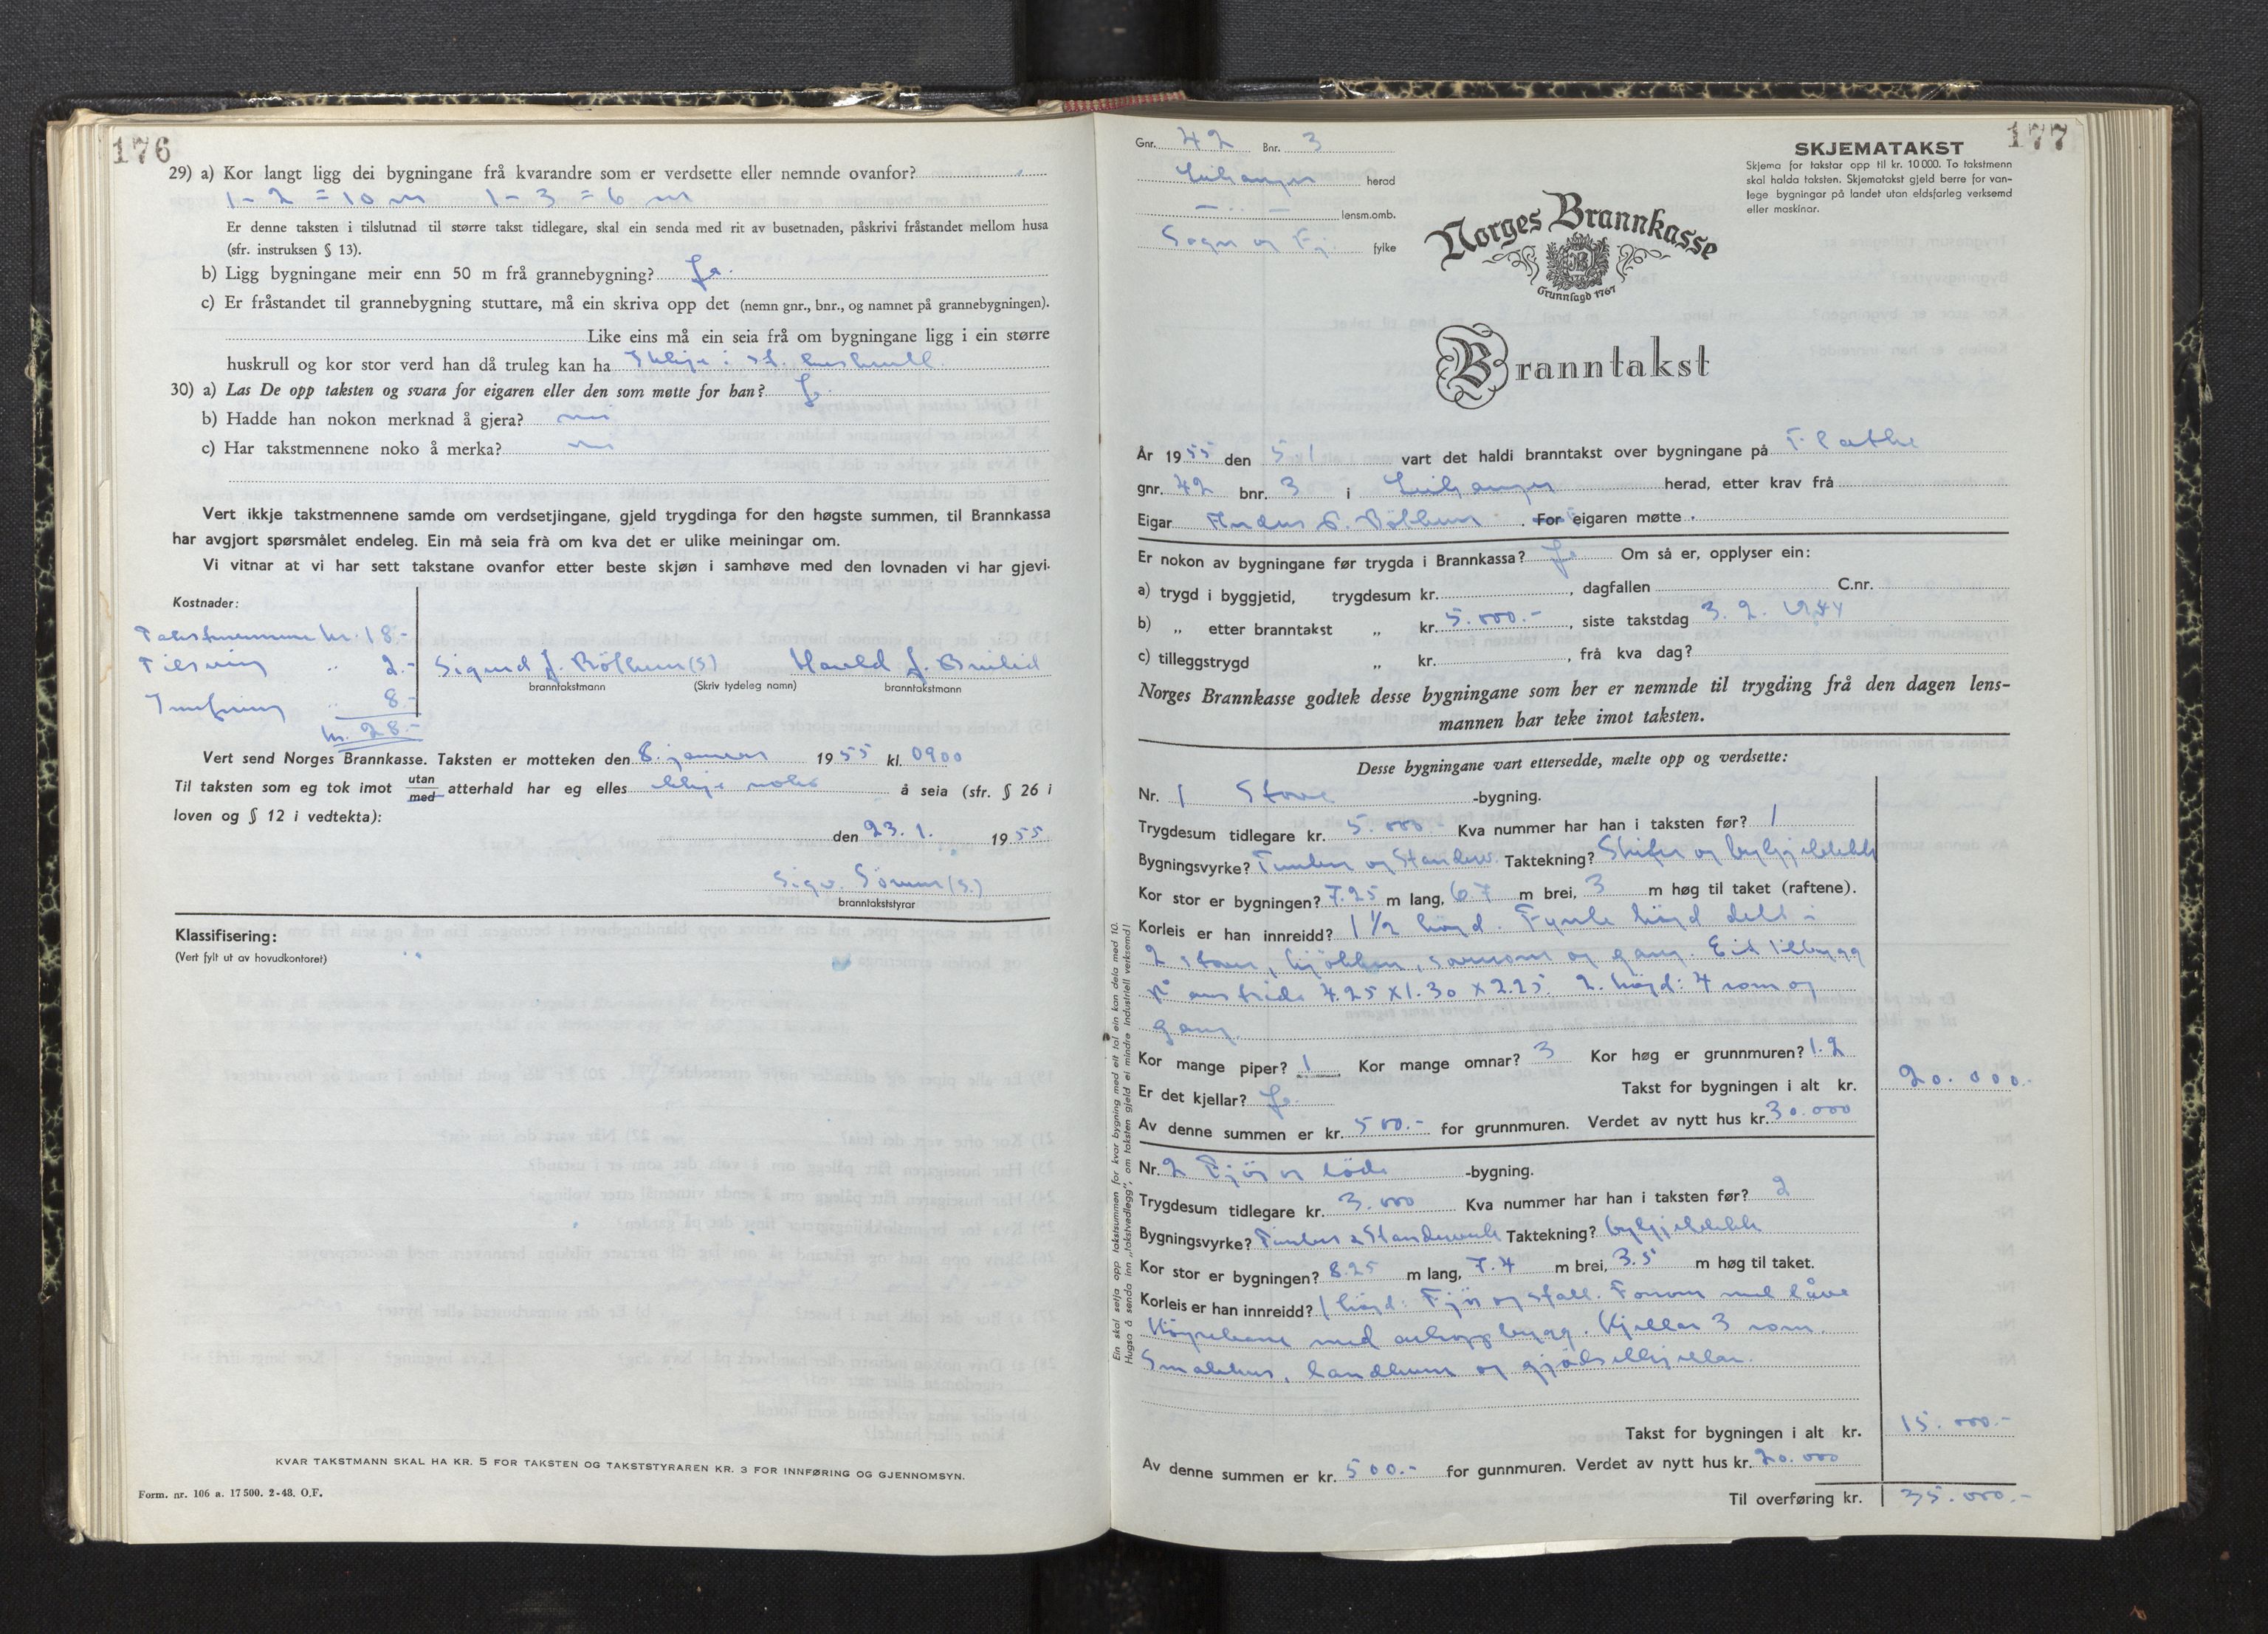 176
29) a) Kor langt ligg dei bygningane frå kvarandre som er verdsette eller nemnde ovanfor?
1 - 2 = 10 m 1 - 3 = 6 m
Er denne taksten i tilslutnad til større takst tidlegare, skal ein senda med rit av busetnaden, påskrivi fråstandet mellom husa
(sfr. instruksen § 13).
b) Ligg bygningane meir enn 50 m frå grannebygning? Ja.
c) Er fråstandet til grannebygning stuttare, må ein skriva opp det (nemn gnr., bnr., og namnet på grannebygningen).
Like eins må ein seia frå om bygningane ligg i ein større
huskrull og kor stor verd han då truleg kan ha Ikkje i st. huskrull.
30) a) Las De opp taksten og svara for eigaren eller den som møtte for han? Ja.
b) Hadde han nokon merknad å gjera? nei
c) Har takstmennene noko å merka? nei
Vert ikkje takstmennene samde om verdsetjingane, gjeld trygdinga for den høgste summen, til Brannkassa
har avgjort spørsmålet endeleg. Ein må seia frå om kva det er ulike meiningar om.
Vi vitnar at vi har sett takstane ovanfor etter beste skjøn i samhøve med den lovnaden vi har gjevi.
Kostnader:
Takstmennene kr. 18.-
Tilsyn " 2.-
Innføring " 8.-
kr. 28.-
Sigurd J. Bøthun (s) Harald J.
branntakstmann (Skriv tydeleg namn) branntakstmann
Vert send Norges Brannkasse. Taksten er motteken den 8. januar 1955 kl. 0900
Til taksten som eg tok imot utan/med atterhald har eg elles ikkje noko å seia (sfr. § 26 i
loven og § 12 i vedtekta):
den 23. 1. 1955.
Sigv. (s.)
branntakststyrar
Klassifisering:
(Vert fylt ut av hovudkontoret)
KVAR TAKSTMANN SKAL HA KR. 5 FOR TAKSTEN OG TAKSTSTYRAREN KR. 3 FOR INNFØRING OG GJENNOMSYN.
Form. nr. 106 a. 17500. 2-48. O.F.
177
Gnr. 42 Bnr. 3
Leikanger herad
- " - lensm.omb.
Sogn og Fj. fylke
SKJEMATAKST
Skjema for takstar opp til kr. 10000. To takstmenn
skal halda taksten. Skjematakst gjeld berre for van-
lege bygningar på landet utan eldsfarleg verksemd
eller maskinar.
Norges Brannkasse
Grunnlagd 1767
Branntakst
År 1955 den 5 1 vart det haldi branntakst over bygningane på
gnr. 42 bnr. 3 i Leikanger herad, etter krav frå
Eigar Anders P. Bøthun. For eigaren møtte.
Er nokon av bygningane før trygda i Brannkassa? Ja Om så er, opplyser ein:
a) trygd i byggjetid, trygdesum kr. , dagfallen C.nr.
b) „ etter branntakst „ kr. 5.000.- , siste takstdag 3. 2. 1944
c) tilleggstrygd „ kr. , frå kva dag?
Norges Brannkasse godtek desse bygningane som her er nemnde til trygding frå den dagen lens-
mannen har teke imot taksten.
Desse bygningane vart ettersedde, mælte opp og verdsette:
Nr. 1 Stove -bygning.
Trygdesum tidlegare kr. 5.000 Kva nummer har han i taksten før? 1
Bygningsvyrke? Timber og Standerv. Taktekning? Skifer og bylgjeblekk
Kor stor er bygningen? 7.25 m lang, 6.7 m brei, 3 m høg til taket (raftene).
Korleis er han innreidd? 1 1/2 høgd. Fyrste høgd delt i
2 stover, kjøkken, soverom og gang. Eit tilbygg
på austsida 4.25 x 1.30 x 2.25. 2. høgd: 4 rom og
gang.
Kor mange piper? 1 Kor mange omnar? 3 Kor høg er grunnmuren? 1.2
Er det kjellar? Ja Takst for bygningen i alt kr. 20.000.-
Av denne summen er kr. 500.- for grunnmuren. Verdet av nytt hus kr. 30.000
Nr. 2 Fjøs og løde -bygning.
Trygdesum tidlegare kr. 3.000 Kva nummer har han i taksten før? 2
Bygningsvyrke? Timber & Standerverk Taktekning? bylgjeblekk
Kor stor er bygningen? 8.25 m lang, 7.4 m brei, 3.5 m høg til taket.
Korleis er han innreidd? 1 høgd: Fjøs og stall. Forrom med låve
Køyrebane med overbygg. Kjellar 3 rom.
Smalehus, landkum og gjødselkjellar.
Takst for bygningen i alt kr. 15.000.-
Av denne summen er kr. 500.- for gunnmuren. Verdet av nytt hus kr. 20.000
Til overføring kr. 35.000.-
Ein skal setja opp takstsummen for kvar bygning med eit tal ein kan dela med 10.
Hugsa å senda inn „takstvedlegg”, om taksten gjeld ei mindre industriell verksemd!